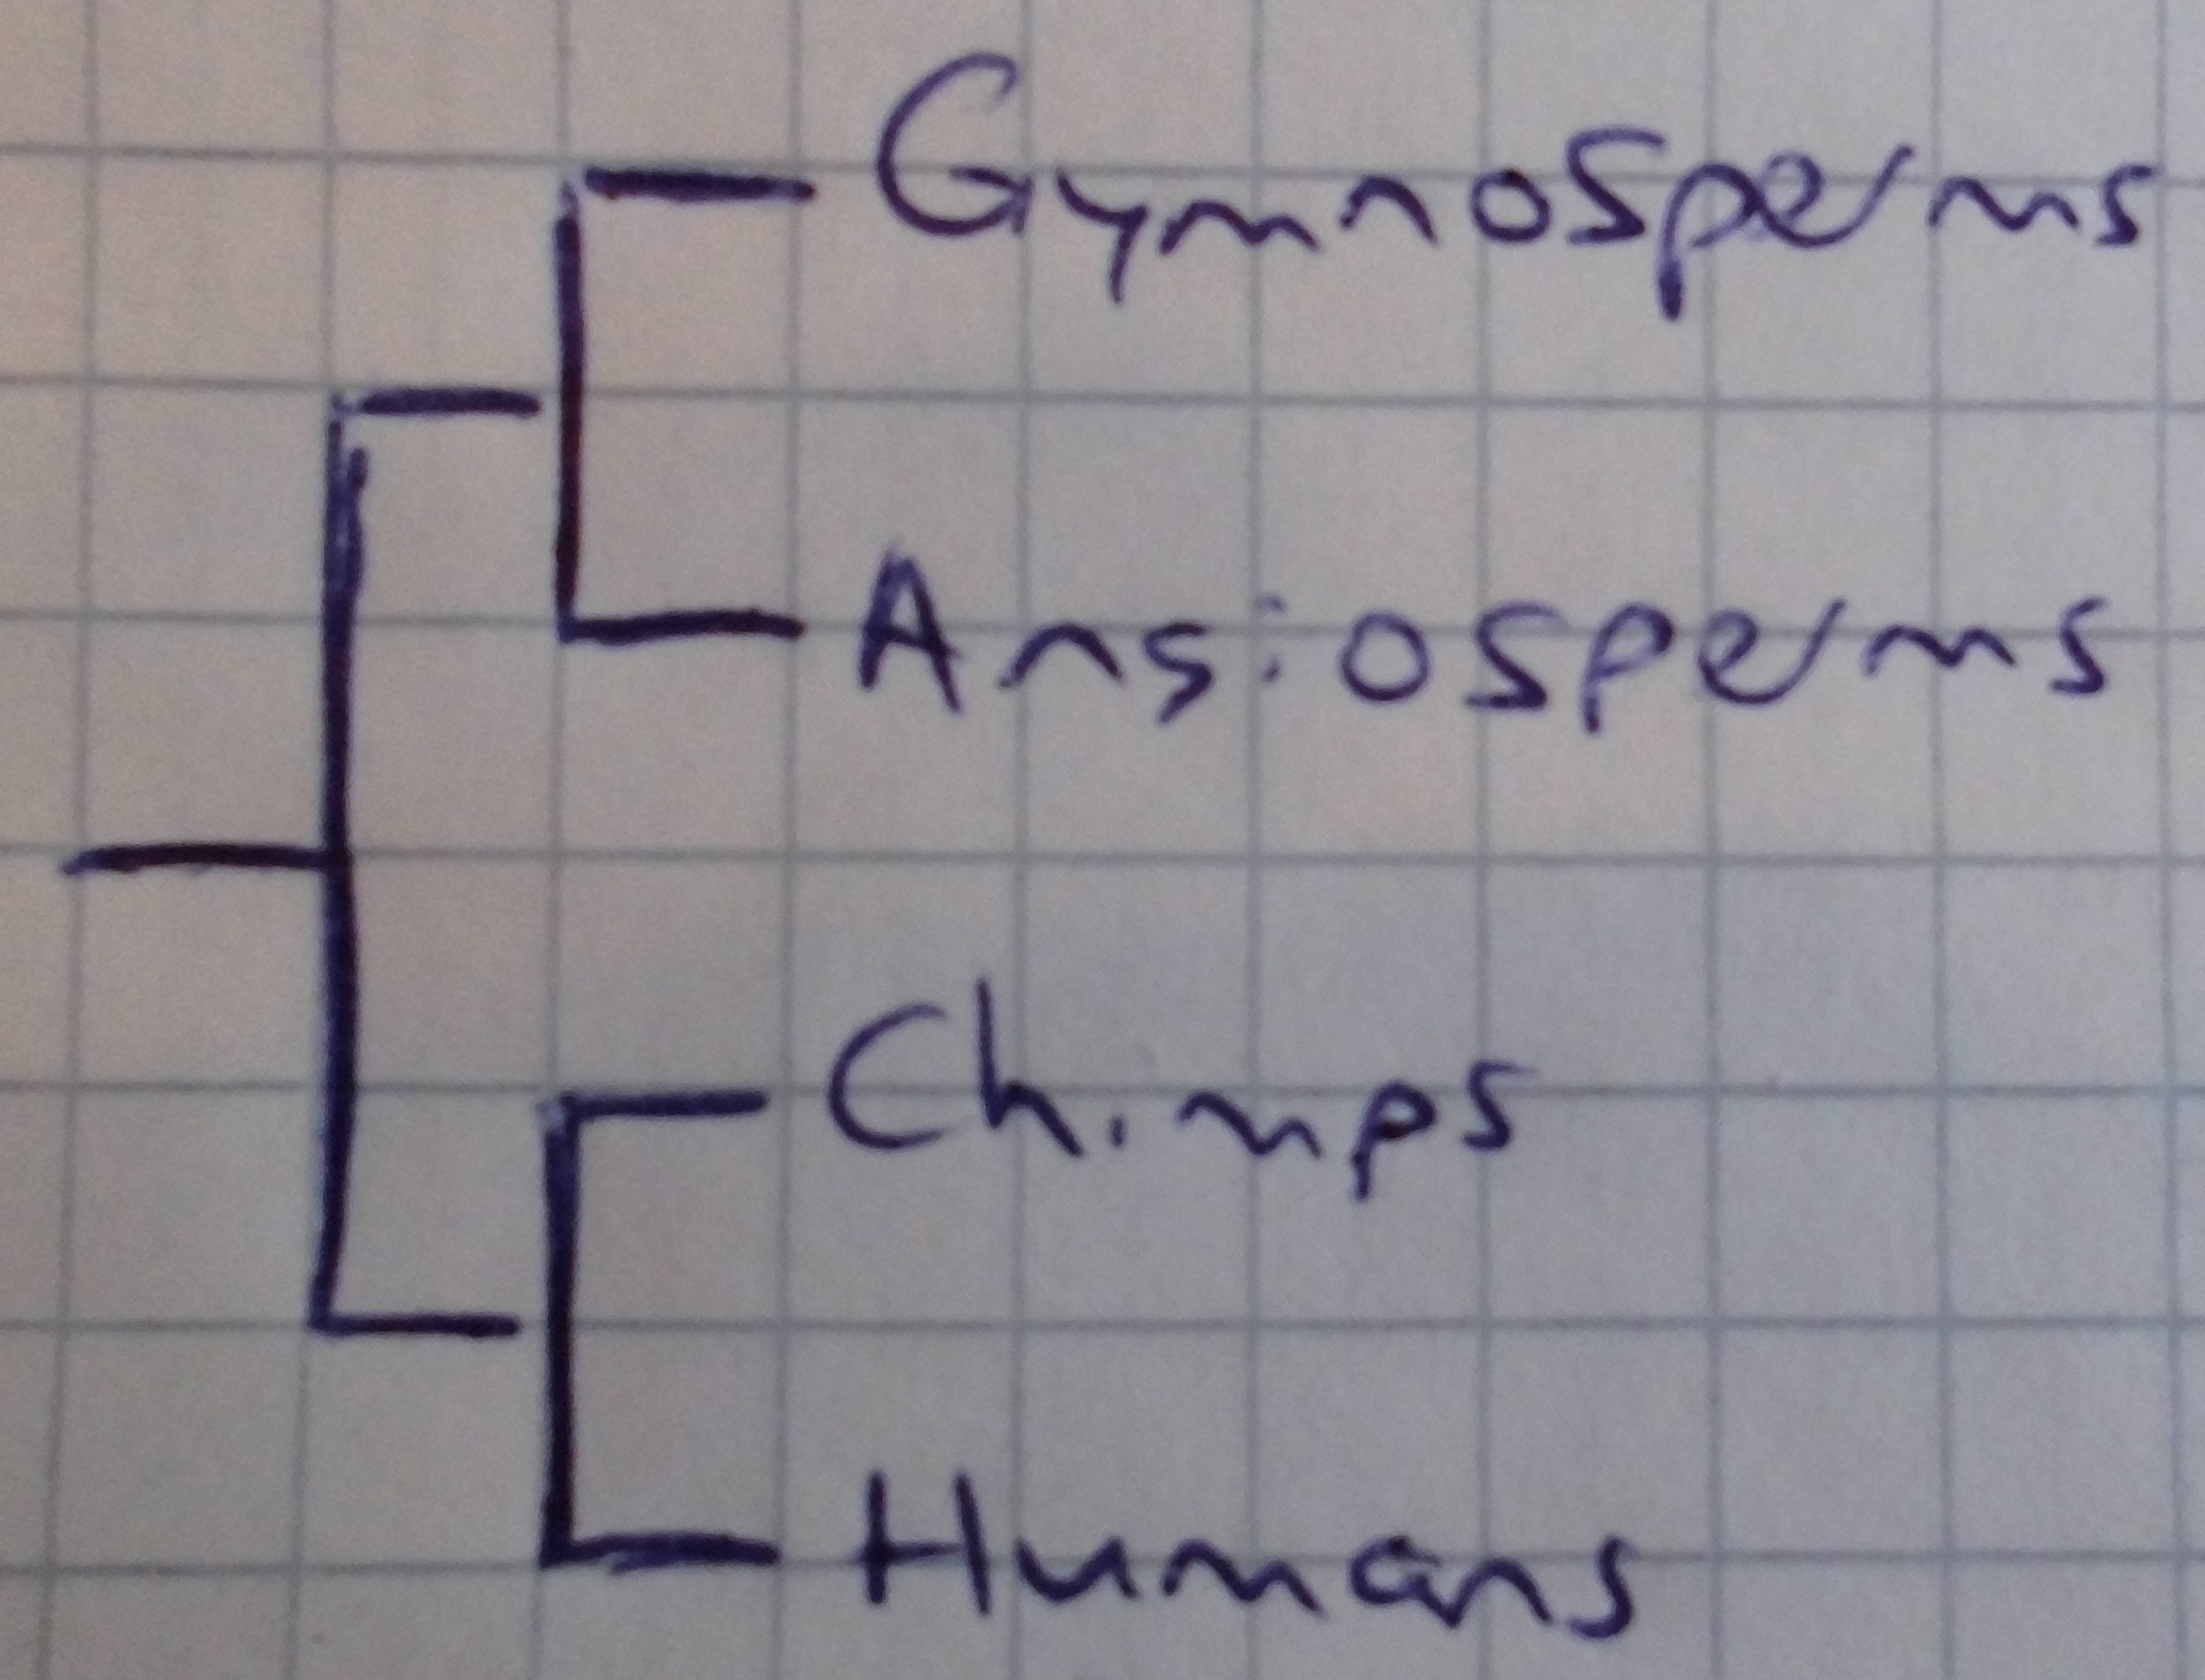 Gymnosperms
Angiosperms
Chimps
Humans